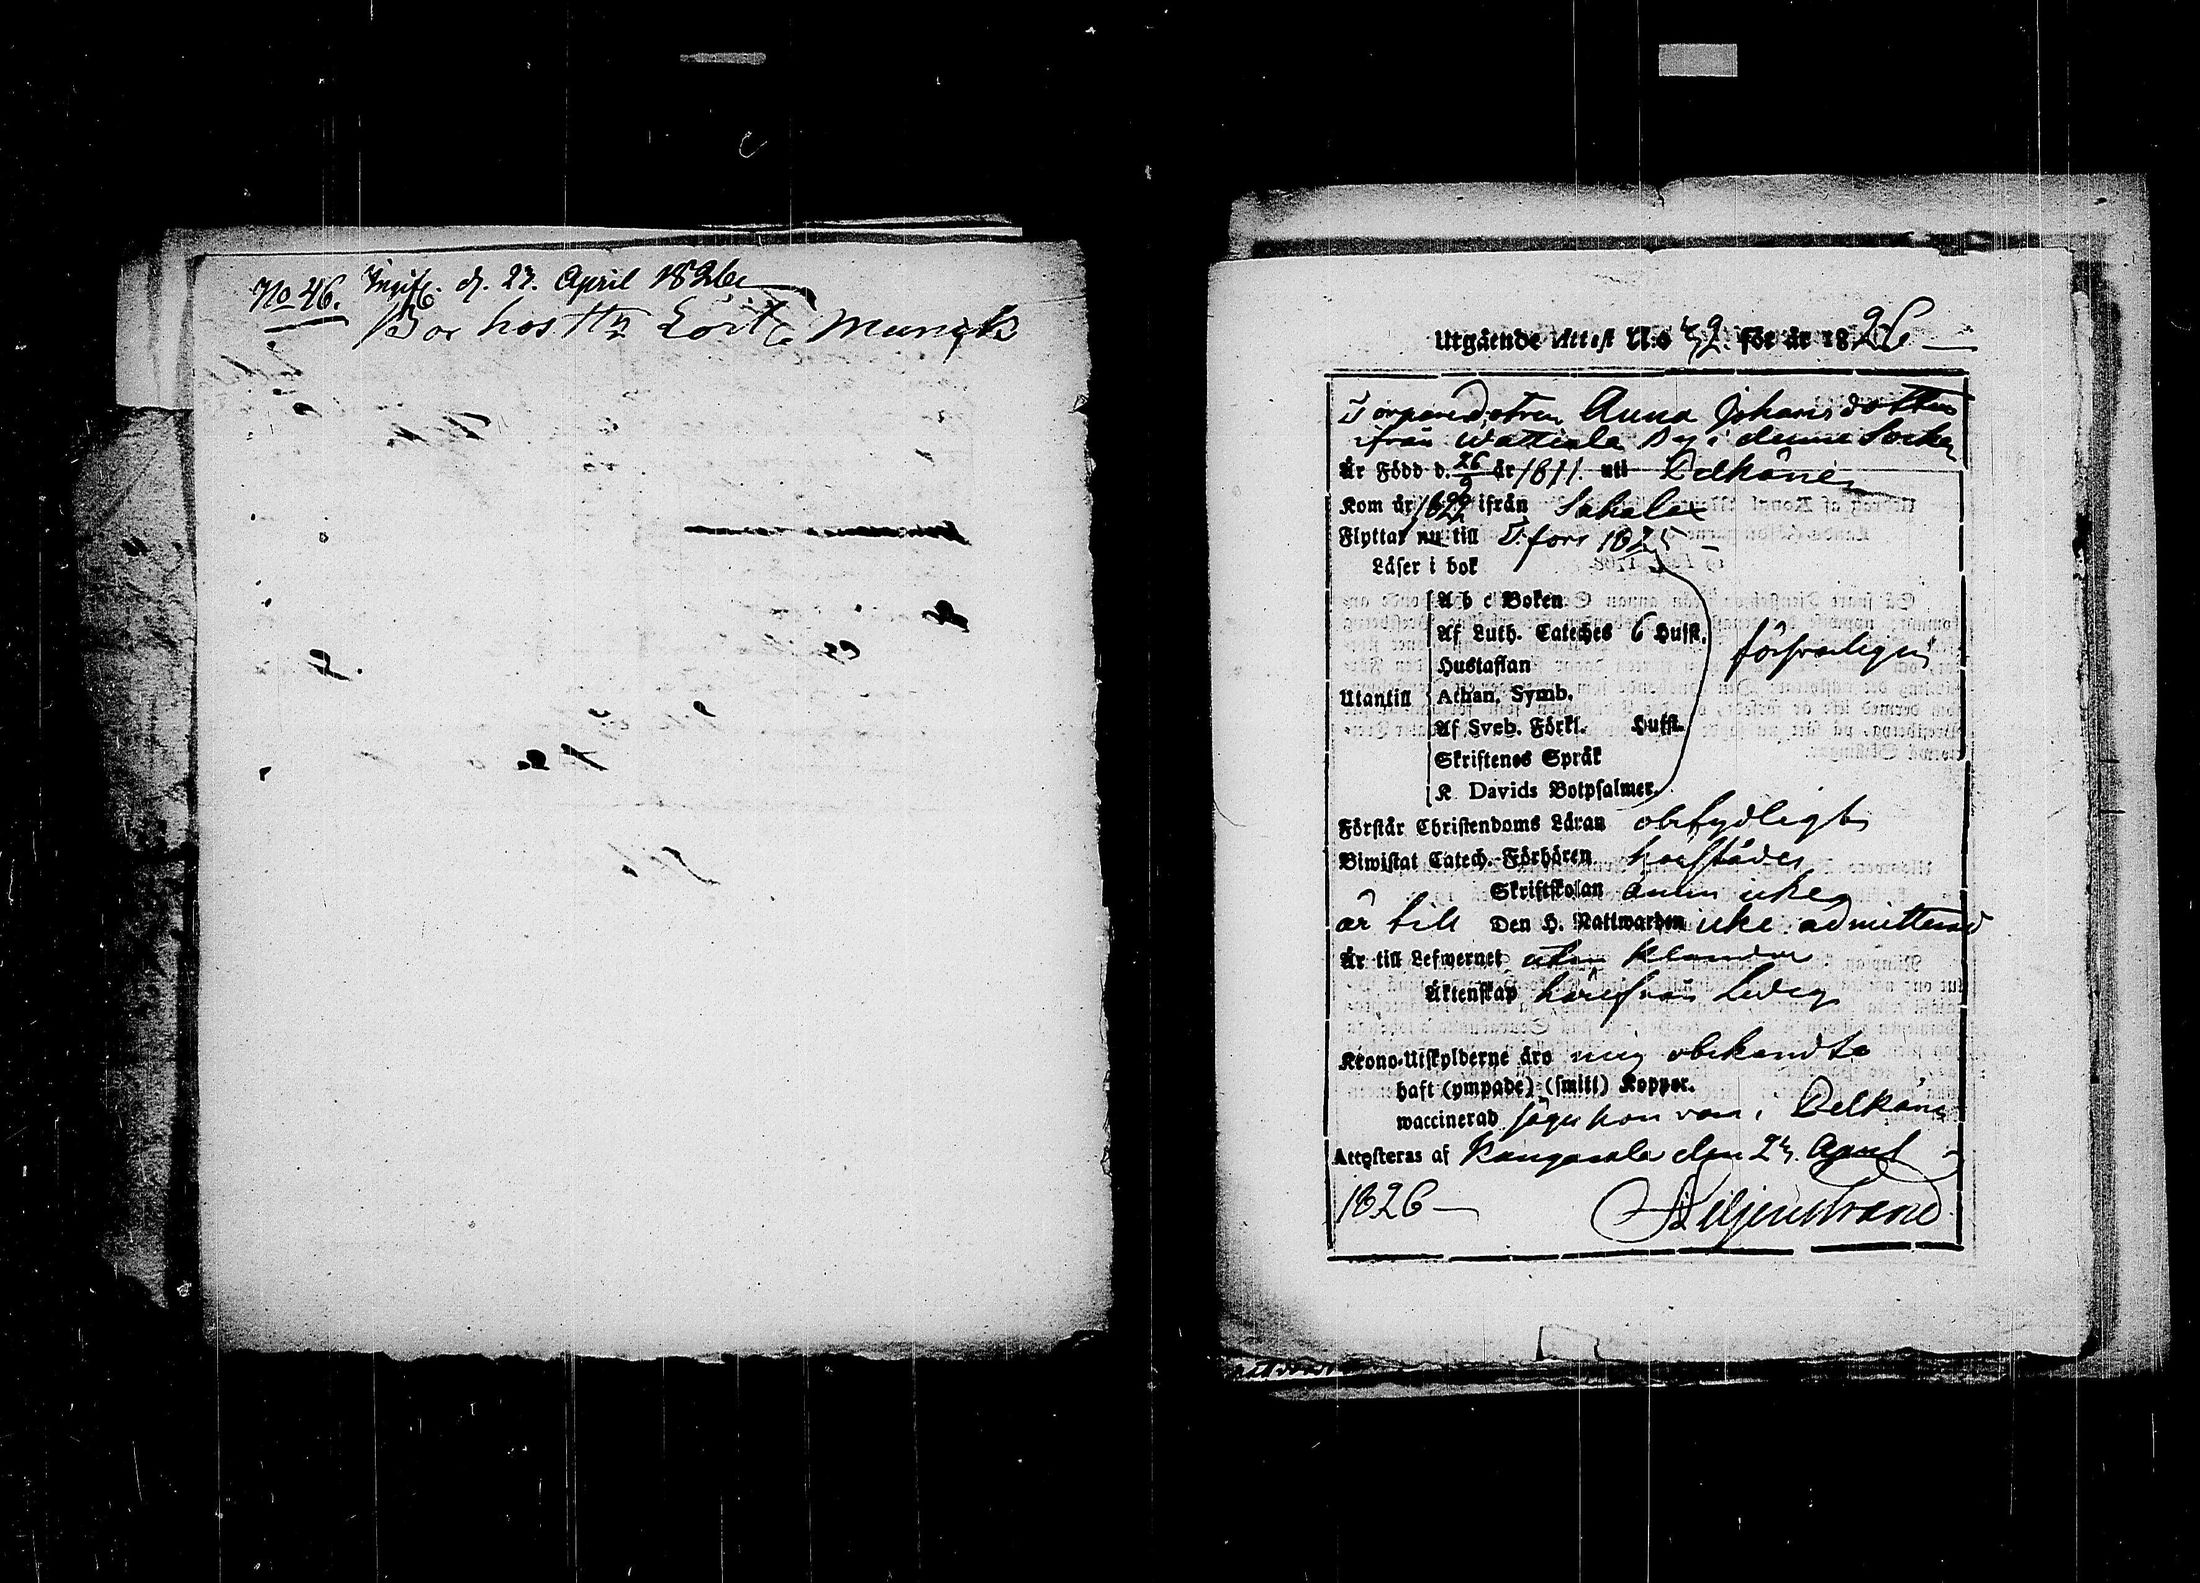 No 46. Ingifv. d. 27. April 1826
Bor hos Hr Löitn Munck
Utgående Attest N:o 32. för år 1826
Torparedottren Anna Johansdotter
ifrån Wattiala By i denne Socken
Är Född d. 26/9 år 1811. uti Pelkäne
Kom år 1822 ifrån Sahalax
Flyttar nu till T.fors 1825
Läser i bok
A b c Boken
Af Luth. Cateches 6 Hufst.
försvarligen
Hustaflan
Utantill Athan. Symb.
Af Sveb. Förkl. Hufst.
Skriftenes Språk
K. Davids Botpsalmer.
Förstår Christendoms Läran obetydligt
Biwistat Catech.-Förhören härstädes
Skriftskolan ännu icke
är till Den H. Nattwarden icke admitterad
Är till Lefwernet utan klander
Äktenskap härifrån Ledig
Krono-Utskylderne äro mig obekandta
haft (ympade) (smitt) Koppor.
waccinerad säges hon vara i Pelkäne
Attesteras af Kangasala den 23. April
1826
Liljenstrand